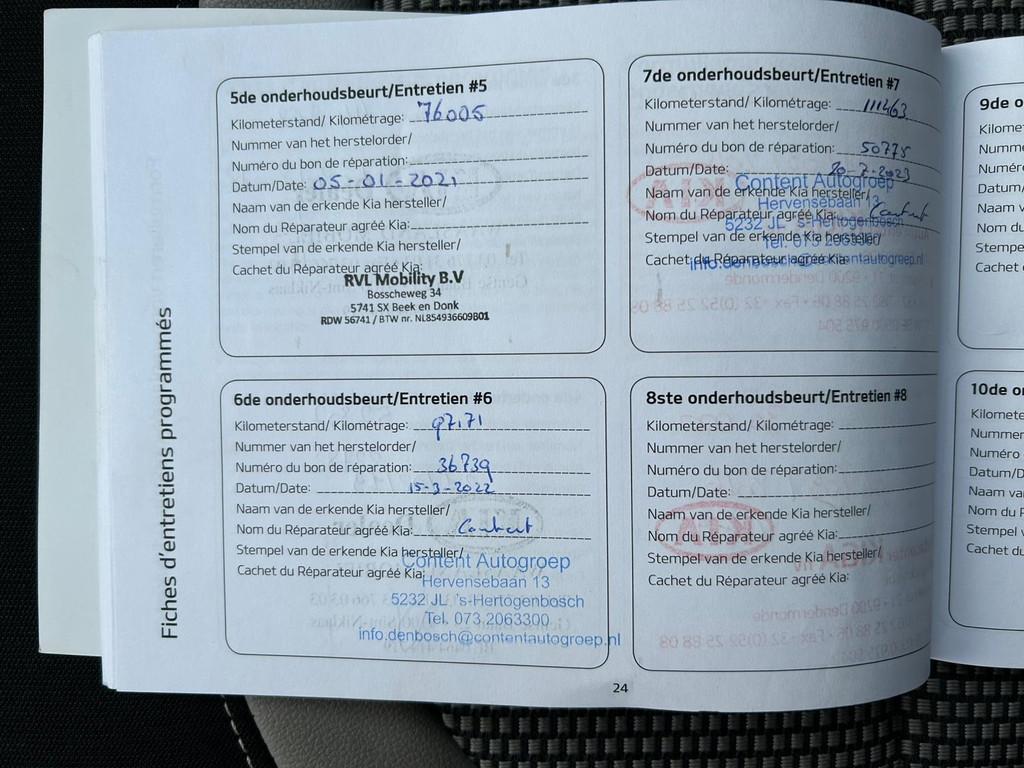 Fiches d'entretiens programmés
5de onderhoudsbeurt/Entretien #5
Kilometerstand/ Kilométrage: 76005
Nummer van het herstelorder/
Numéro du bon de réparation:
Datum/Date: 05-01-2021
Naam van de erkende Kia hersteller/
Nom du Réparateur agréé Kia:
Stempel van de erkende Kia hersteller/
Cachet du Réparateur agréé Kia:
RVL Mobility B.V
Bosscheweg 34
5741 SX Beek en Donk
RDW 56741 / BTW nr. NL854936609B01
6de onderhoudsbeurt/Entretien #6
Kilometerstand/ Kilométrage: 97171
Nummer van het herstelorder/
Numéro du bon de réparation: 36739
Datum/Date: 15-3-2022
Naam van de erkende Kia hersteller/
Nom du Réparateur agréé Kia: Content
Stempel van de erkende Kia hersteller/
Cachet du Réparateur agréé Kia:
Content Autogroep
Hervensebaan 13
5232 JL 's-Hertogenbosch
Tel. 073.2063300
info.denbosch@contentautogroep.nl
7de onderhoudsbeurt/Entretien #7
Kilometerstand/ Kilométrage: 111463
Nummer van het herstelorder/
Numéro du bon de réparation: 50775
Datum/Date: 20-7-2023
Naam van de erkende Kia hersteller/
Nom du Réparateur agréé Kia: Content
Stempel van de erkende Kia hersteller/
Cachet du Réparateur agréé Kia:
Content Autogroep
Hervensebaan 13
5232 JL 's-Hertogenbosch
Tel. 073 2063300
info.denbosch@contentautogroep.nl
8ste onderhoudsbeurt/Entretien #8
Kilometerstand/ Kilométrage:
Nummer van het herstelorder/
Numéro du bon de réparation:
Datum/Date:
Naam van de erkende Kia hersteller/
Nom du Réparateur agréé Kia:
Stempel van de erkende Kia hersteller/
Cachet du Réparateur agréé Kia:
24
9de o
Kilome
Numm
Numé
Datum/
Naam v
Nom du
Stempe
Cachet
10de on
Kilomete
Nummer
Numéro
Datum/D
Naam va
Nom du R
Stempel v
Cachet du